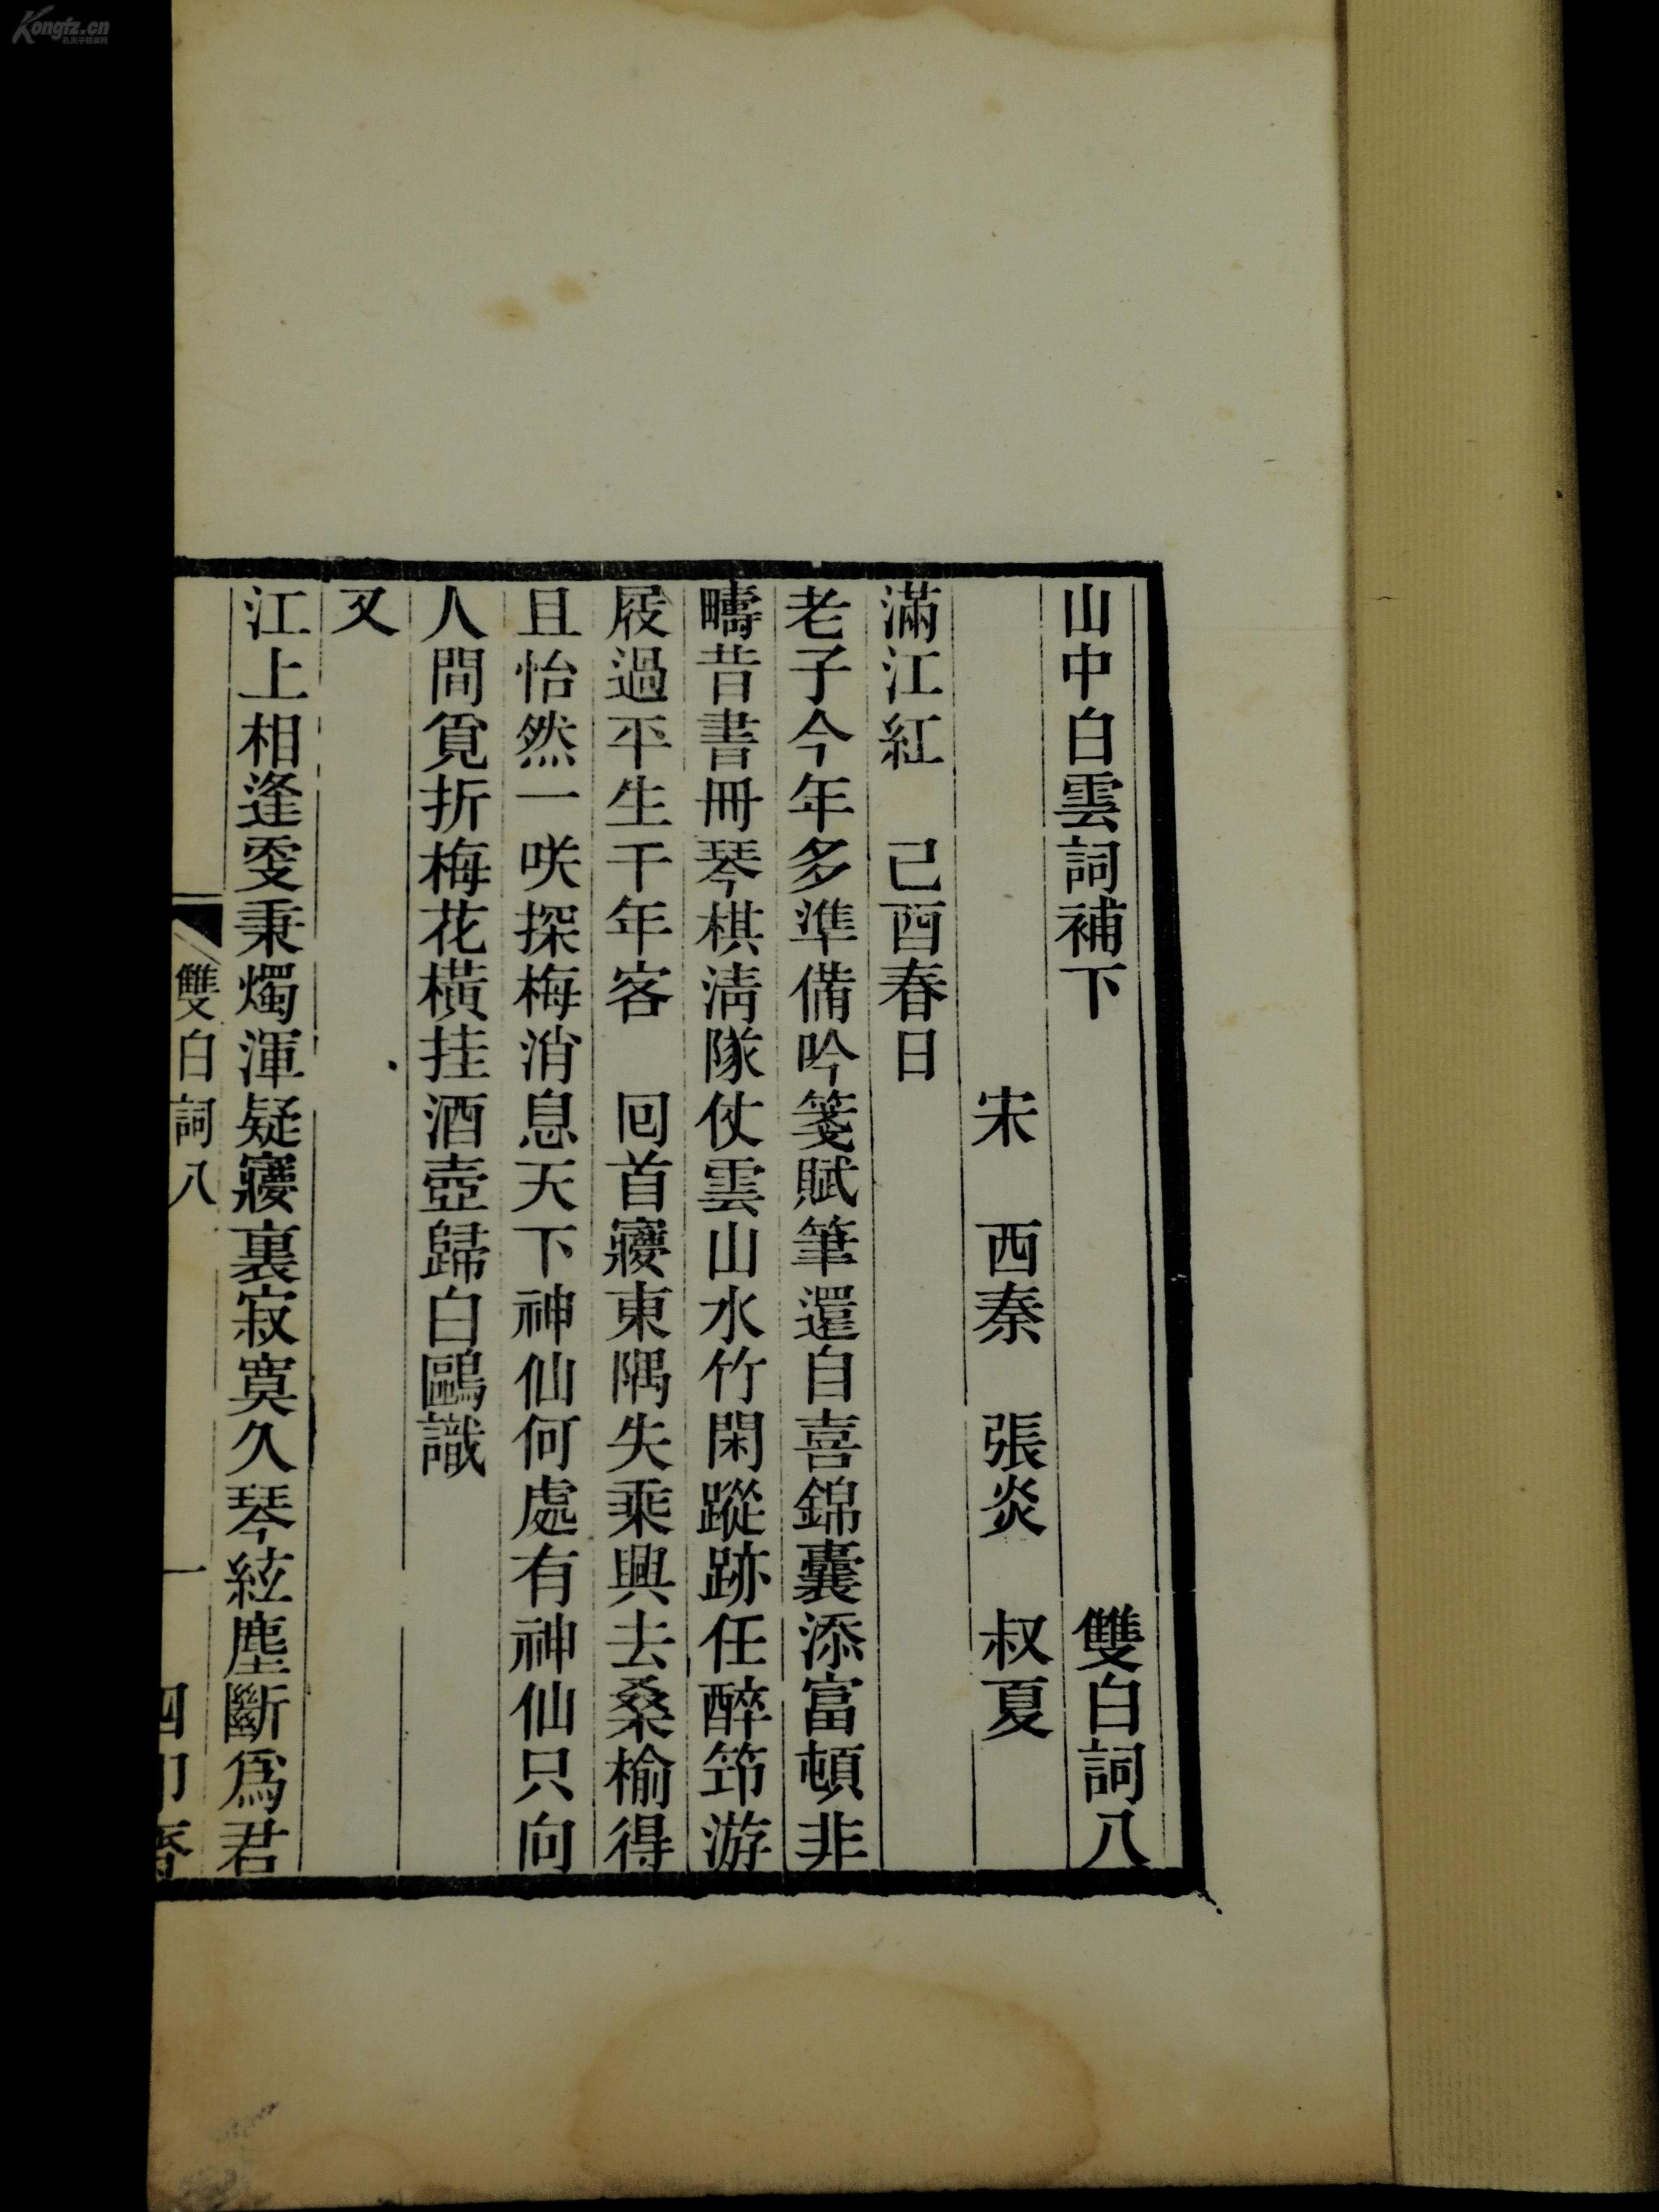 山中白雲詞補下　　　雙白詞八
宋　西秦　張炎　叔夏
滿江紅　己酉春日
老子今年多準備吟箋賦筆還自喜錦囊添富頓非
疇昔書冊琴棋淸隊仗雲山水竹閑蹤跡任醉筇游
屐過平生千年客　回首寢東隅失乘興去桑榆得
且怡然一咲探梅消息天下神仙何處有神仙只向
人間覓折梅花橫挂酒壺歸白鷗識
又
江上相逢更秉燭渾疑寢裏寂寞久琴絃塵斷爲君
雙白詞八
一
四印齋
Kongfz.cn